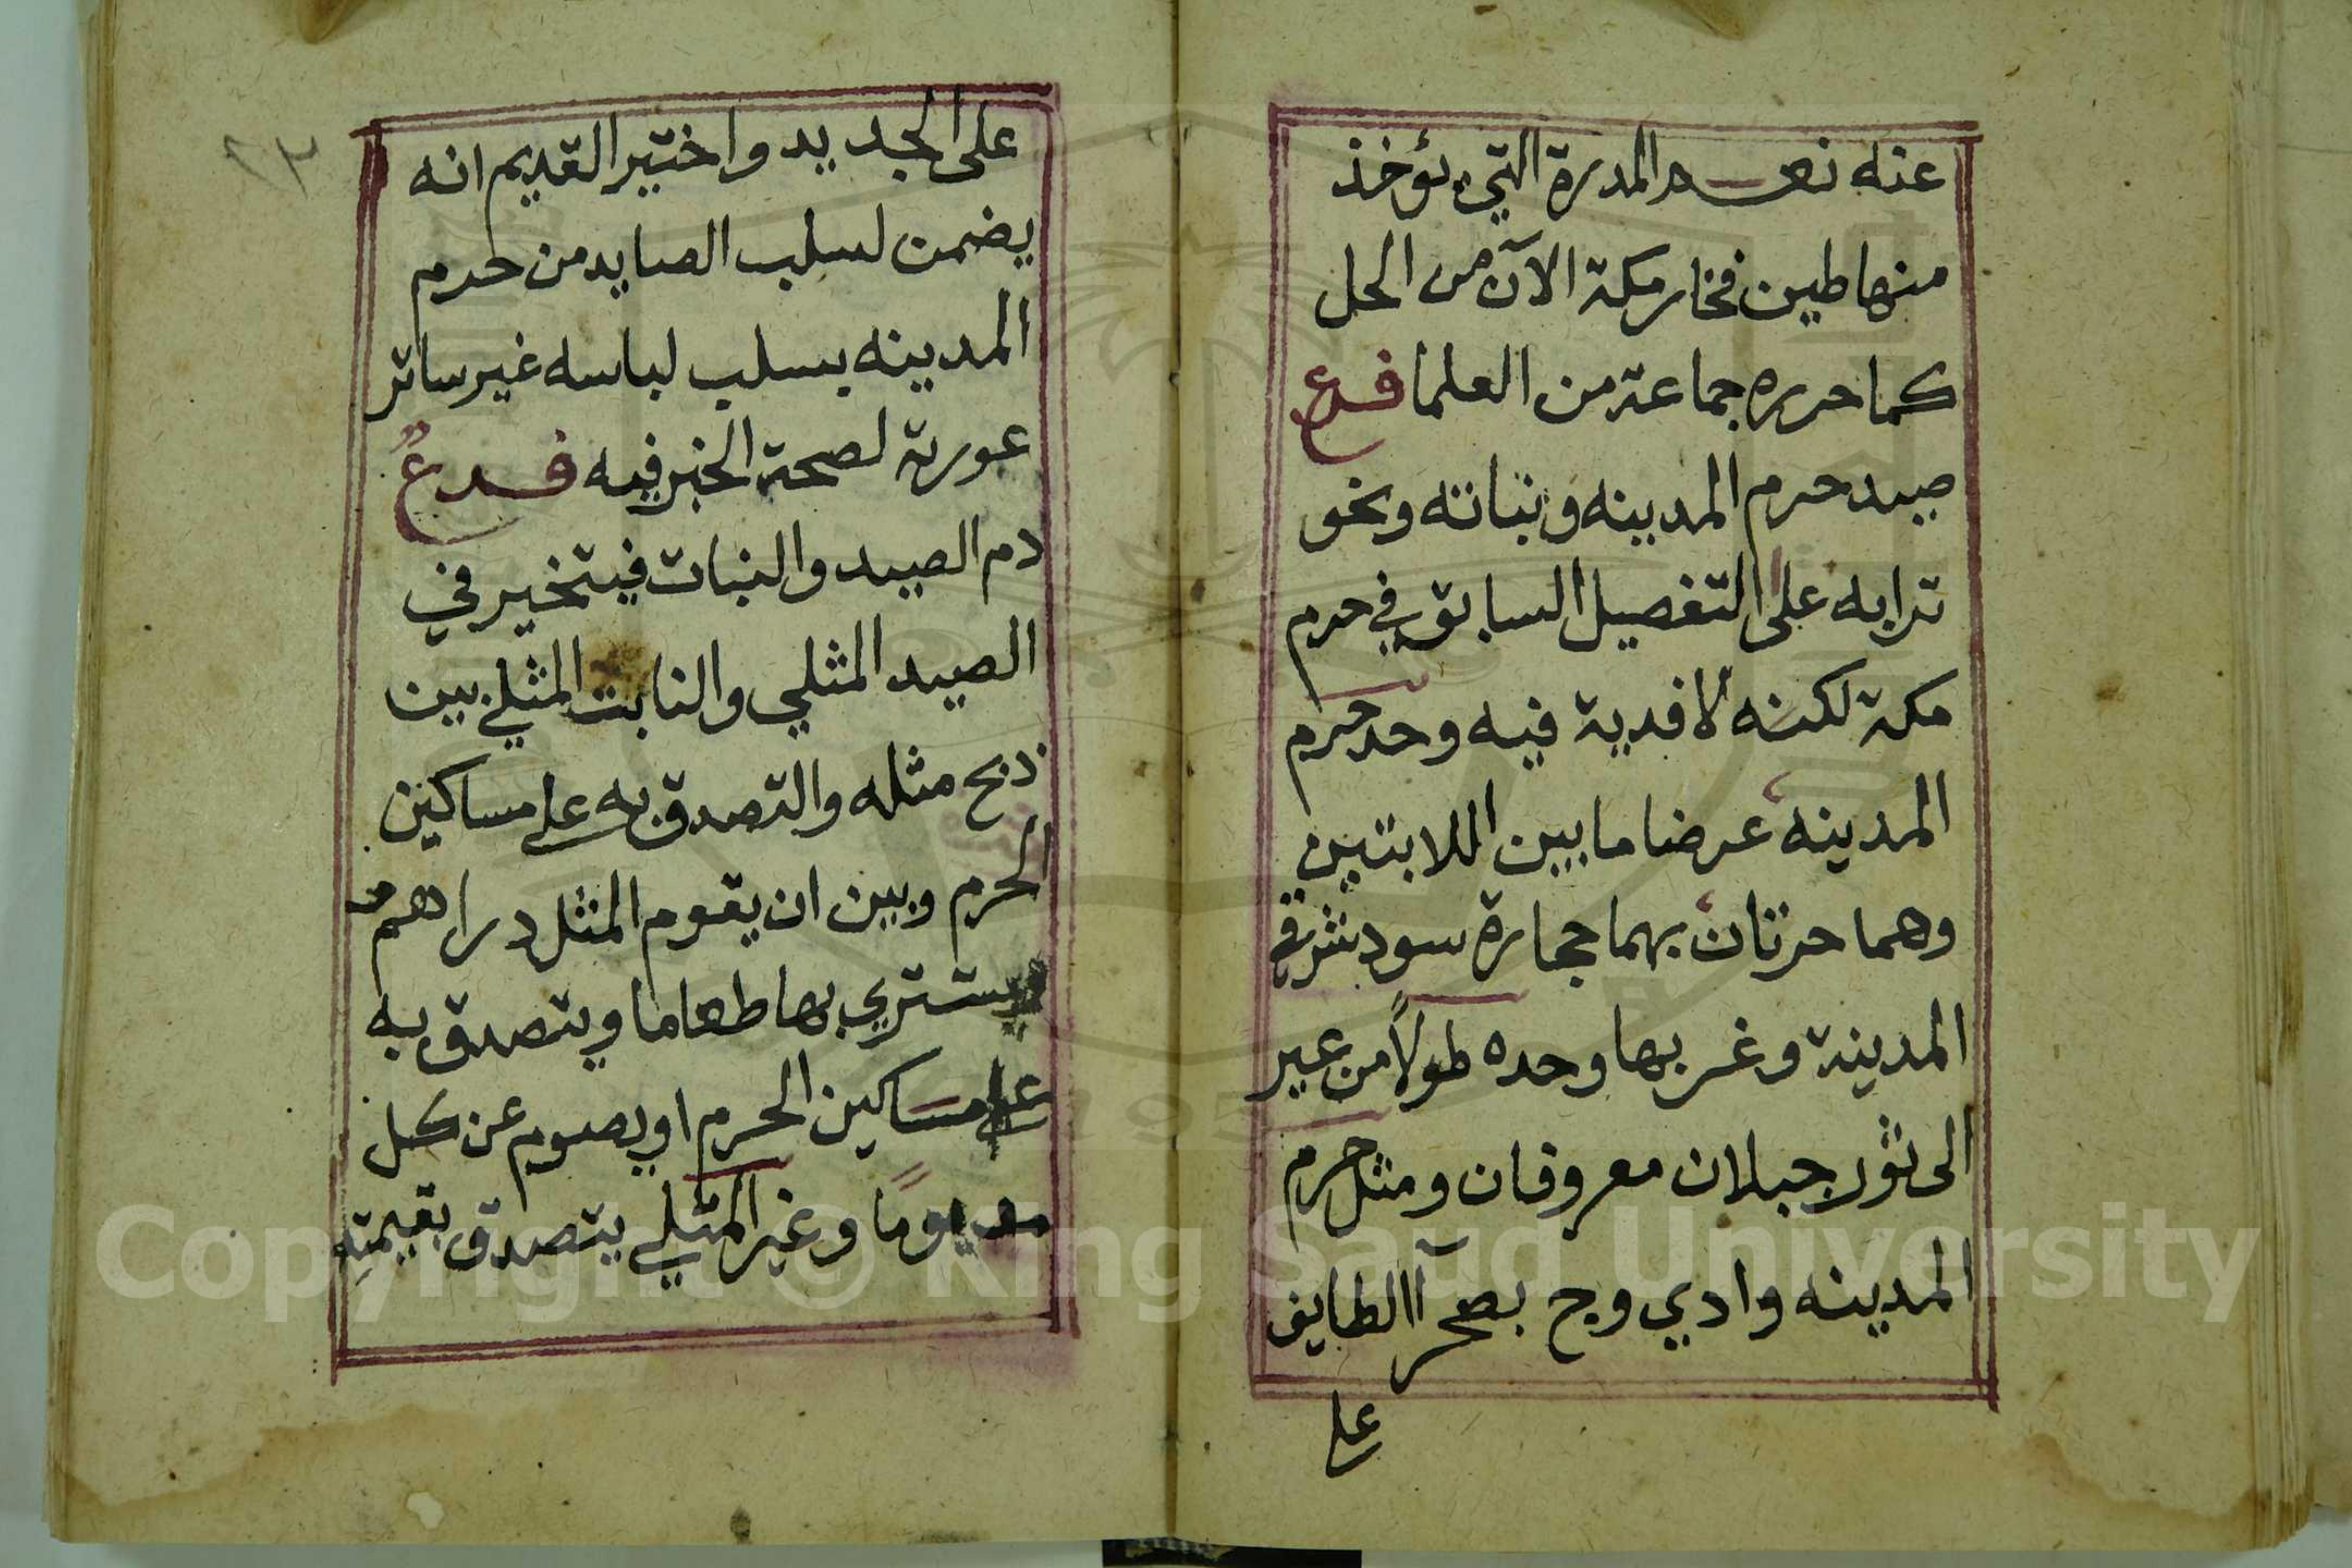 عنه نعم المدرة التي يؤخذ
منها طين فخار مكة الآن من الحل
كما حرره جماعة من العلما فرع
صيد حرم المدينه ونباته ونحو
ترابه على التفصيل السابق في حرم
مكة لكنه لا فدية فيه وحد حرم
المدينه عرضا ما بين اللابتين
وهما حرتان بهما حجارة سود شرقي
المدينة وغربها وحده طولاً من عير
الى ثور جبلان معروفان ومثل حرم
المدينه وادي وج بصحرآ الطايف
على
٢٣
على الجديد واختير القديم انه
يضمن لسلب الصايد من حرم
المدينه بسلب لباسه غير ساتر
عورته لصحة الخبر فيه فرعٌ
دم الصيد والنبات فيتخير في
الصيد المثلي والنابت المثلي بين
ذبح مثله والتصدق به على مساكين
الحرم وبين ان يقوم المثل دراهم
يشتري بها طعاما ويتصدق به
على مساكين الحرم او يصوم عن كل
مد يومًا وغير المثلي يتصدق بقيمته
Copyright © King Saud University
1957